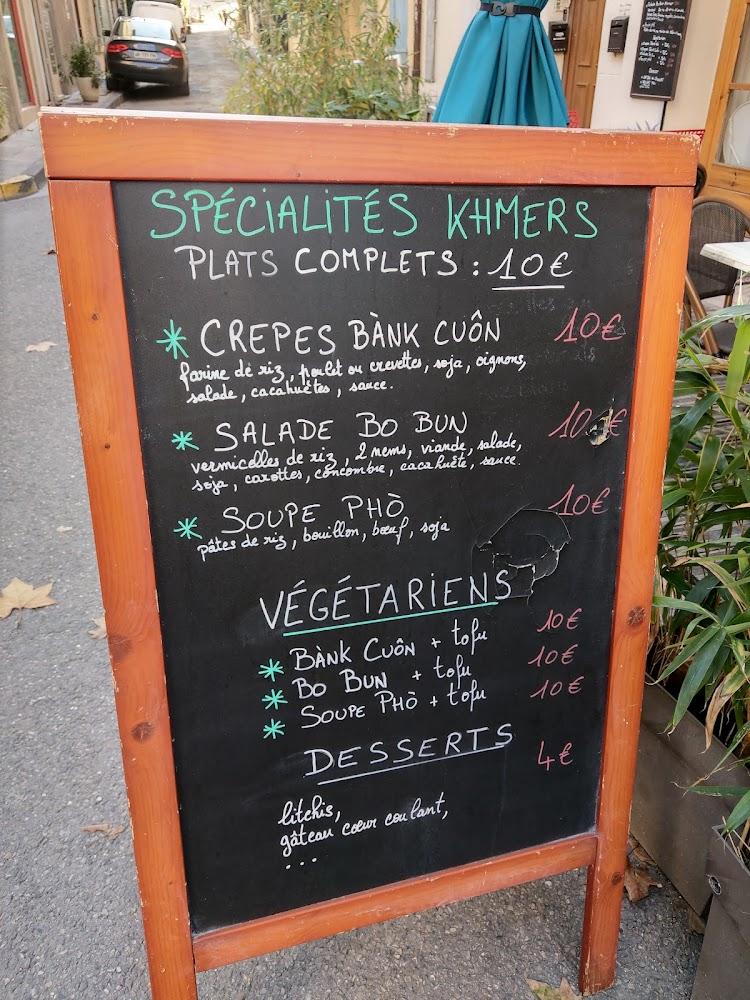 SPÉCIALITÉS KHMERS
PLATS COMPLETS : 10€
* CREPES BÀNK CUÔN 10€
farine de riz, poulet ou crevettes, soja, oignons,
salade, cacahuètes, sauce.
* SALADE BO BUN 10€
vermicelles de riz, 2 nems, viande, salade,
soja, carottes, concombre, cacahuète, sauce.
* SOUPE PHÒ 10€
pâtes de riz, bouillon, bœuf, soja
VÉGÉTARIENS
* BÀNK CUÔN + tofu 10€
* BO BUN + tofu 10€
* SOUPE PHÒ + tofu 10€
DESSERTS 4€
litchis,
gâteau cœur coulant,
...